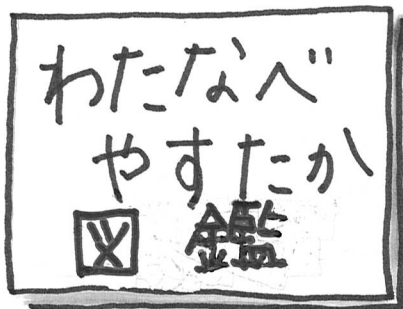 わたなべ
やすたか
図鑑